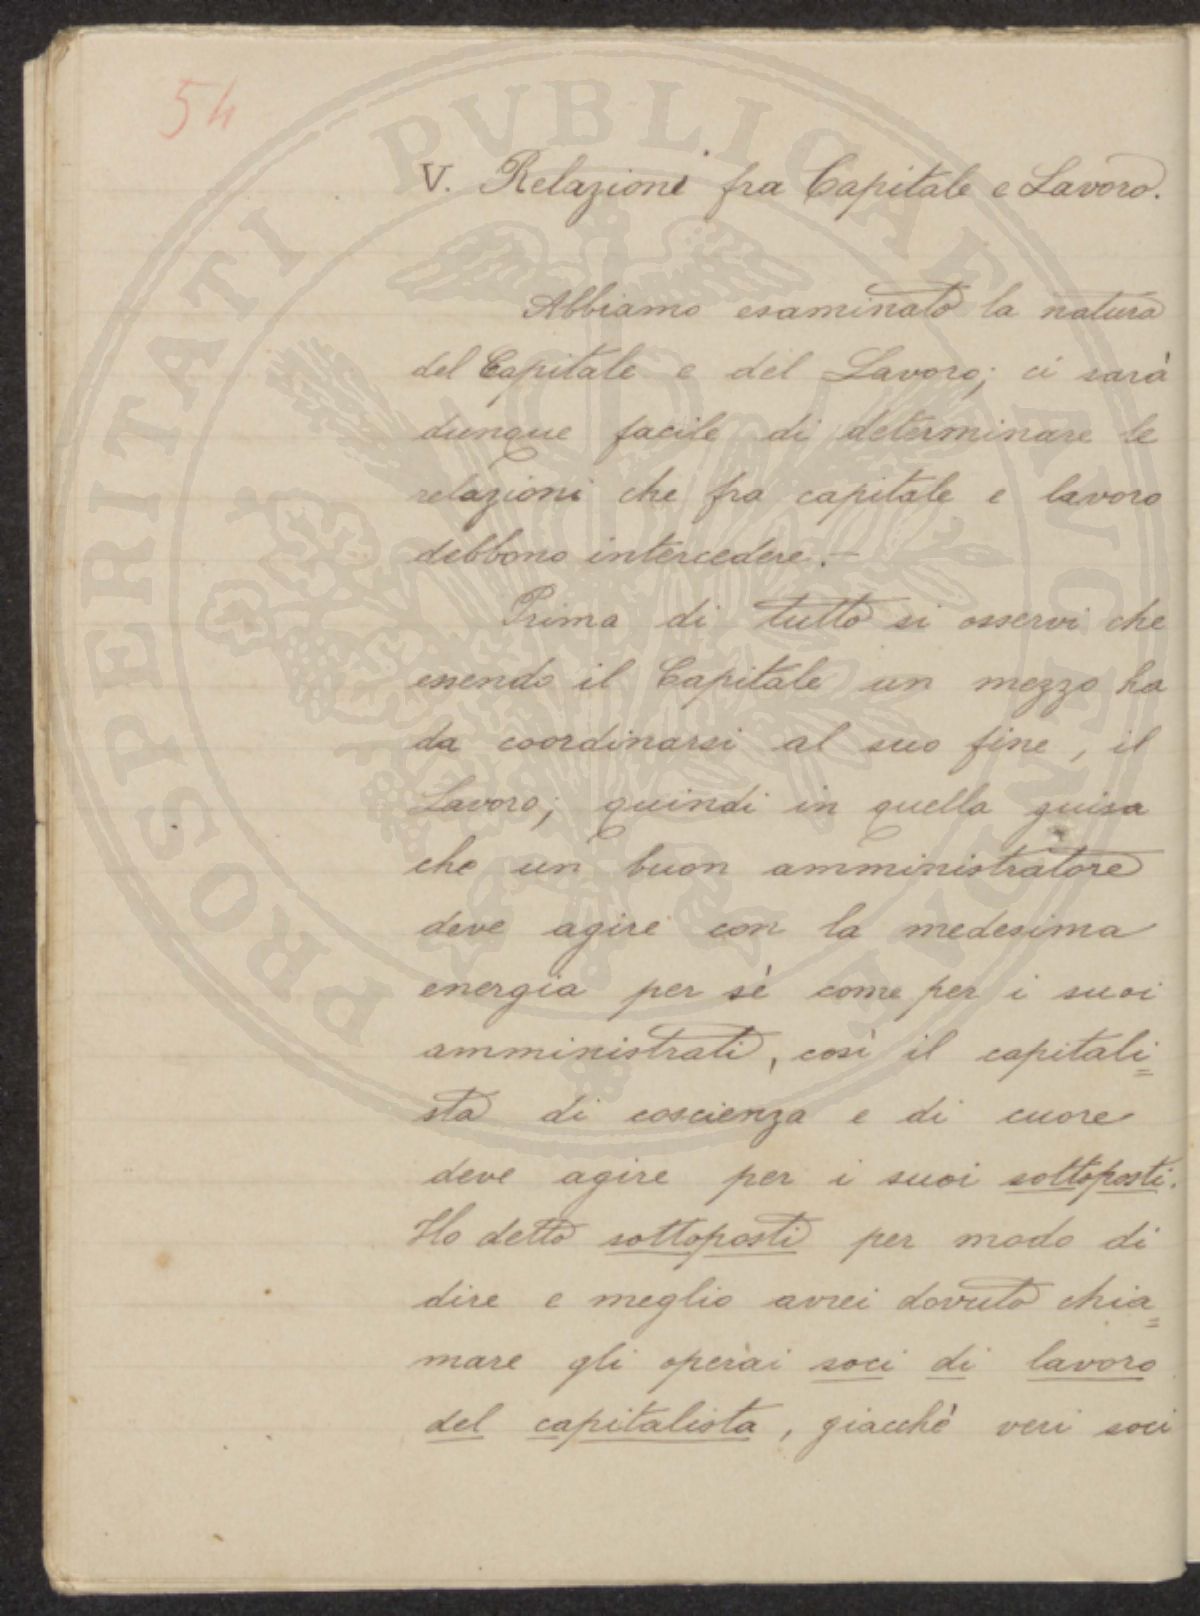 54
V. Relazioni fra Capitale e Lavoro.
Abbiamo esaminato la natura
del Capitale e del Lavoro; ci sarà
dunque facile di determinare le
relazioni che fra capitale e lavoro
debbono intercedere.—
Prima di tutto si osservi che
essendo il Capitale un mezzo ha
da coordinarsi al suo fine, il
Lavoro; quindi in quella guisa
che un buon amministratore
deve agire con la medesima
energia per sè come per i suoi
amministrati, così il capitali=
sta di coscienza e di cuore
deve agire per i suoi sottoposti.
Ho detto sottoposti per modo di
dire e meglio avrei dovuto chia=
mare gli operai soci di lavoro
del capitalista, giacchè veri soci
PROSPERITATI PVBLICAE AVGENDAE